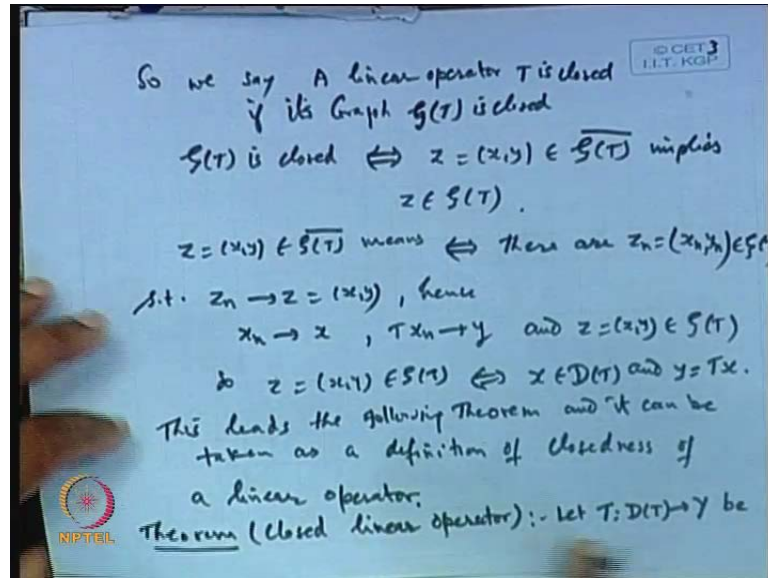 © CET 3
I.I.T. KGP
So we say A linear operator T is closed
if its Graph G(T) is closed
G(T) is closed ⇔ z = (x,y) ∈ \overline{G(T)} implies
z ∈ G(T).
z = (x,y) ∈ \overline{G(T)} means ⇔ there are zₙ = (xₙ,yₙ) ∈ G(
s.t. zₙ → z = (x,y), hence
xₙ → x , Txₙ → y and z = (x,y) ∈ G(T)
so z = (x,y) ∈ G(T) ⇔ x ∈ D(T) and y = Tx.
This leads the following Theorem and it can be
taken as a definition of closedness of
a linear operator.
Theorem (Closed linear operator) :- Let T: D(T) → Y be
NPTEL